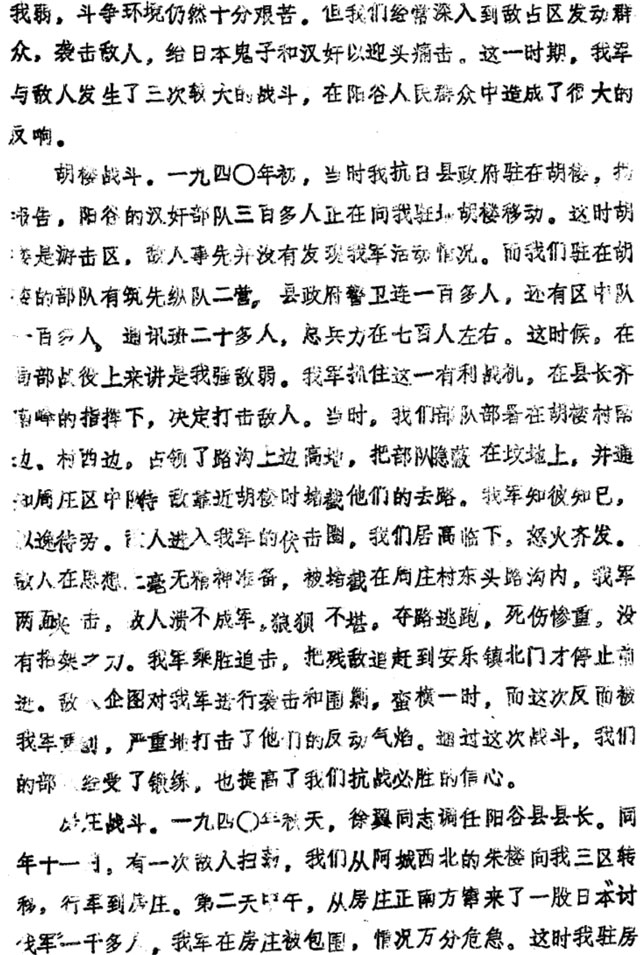 我弱，斗争环境仍然十分艰苦。但我们经常深入到敌占区发动群
众，袭击敌人，给日本鬼子和汉奸以迎头痛击。这一时期，我军
与敌人发生了三次较大的战斗，在阳谷人民群众中造成了很大的
反响。
胡楼战斗。一九四〇年初，当时我抗日县政府驻在胡楼，据
报告，阳谷的汉奸部队三百多人正在向我驻地胡楼移动。这时胡
楼是游击区，敌人事先并没有发现我军活动情况。而我们驻在胡
楼的部队有筑先纵队二营，县政府警卫连一百多人，还有区中队
一百多人，通讯班二十多人，总兵力在七百人左右。这时候，在
局部战役上来讲是我强敌弱。我军抓住这一有利战机，在县长齐
峰的指挥下，决定打击敌人。当时，我们部队部署在胡楼村南
边。村西边，占领了路沟上边高地，把部队隐蔽在坟地上，并通
知周庄区中队待敌靠近胡楼时堵截他们的去路。我军知彼知已，
以逸待劳。敌人进入我军的伏击圈，我们居高临下，怒火齐发。
敌人在思想上毫无精神准备，被堵截在周庄村东头路沟内，我军
两面夹击，敌人溃不成军，狼狈不堪。夺路逃跑，死伤惨重，没
有招架之力。我军乘胜追击，把残敌追赶到安乐镇北门才停止前
进。敌人企图对我军进行袭击和围剿，蛮横一时，而这次反而被
我军重创，严重地打击了他们的反动气焰。通过这次战斗，我们
的部 经受了锻练，也提高了我们抗战必胜的信心。
庄战斗。一九四〇年秋天，徐翼同志调任阳谷县县长。同
年十一月，有一次敌人扫荡，我们从阿城西北的朱楼向我三区转
移，行军到房庄。第二天中午，从房庄正南方窜来了一股日本“讨
伐军”一千多人，我军在房庄被包围，情况万分危急。这时我驻房